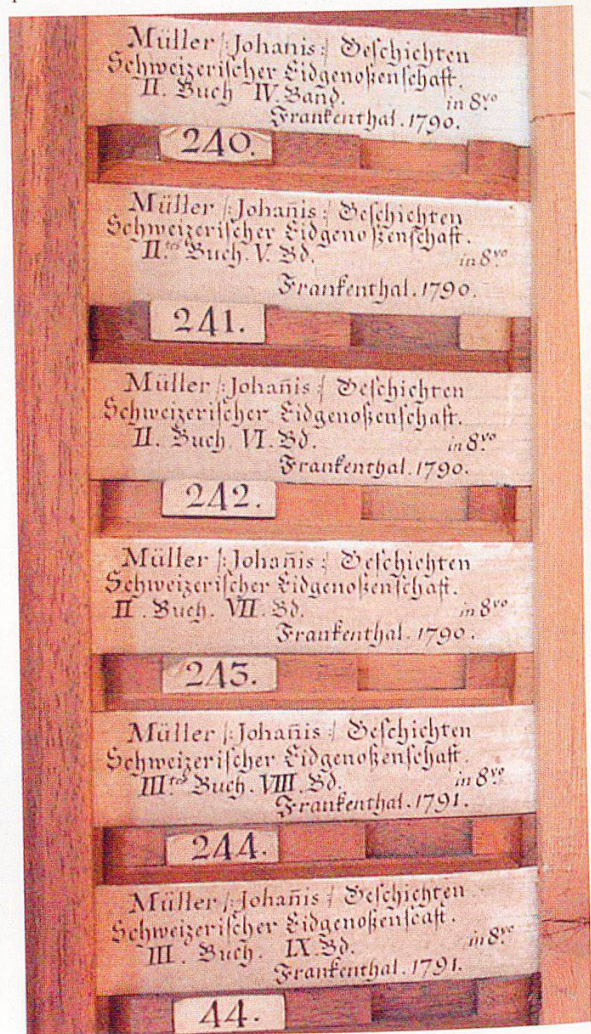 Müller /: Johañis :/ Geschichten
Schweizerischer Eidgenoßenschaft.
II. Buch IV. Band. in 8.vo
Frankenthal. 1790.
240.
Müller /: Johañis :/ Geschichten
Schweizerischer Eidgenoßenschaft.
II.tes Buch. V. Bd. in 8.vo
Frankenthal. 1790.
241.
Müller /: Johañis :/ Geschichten
Schweizerischer Eidgenoßenschaft.
II. Buch. VI. Bd. in 8.vo
Frankenthal. 1790.
242.
Müller /: Johañis :/ Geschichten
Schweizerischer Eidgenoßenschaft.
II. Buch. VII. Bd. in 8.vo
Frankenthal. 1790.
243.
Müller /: Johañis :/ Geschichten
Schweizerischer Eidgenoßenschaft.
III.tes Buch. VIII. Bd. in 8.vo
Frankenthal. 1791.
244.
Müller /: Johañis :/ Geschichten
Schweizerischer Eidgenoßenscaft.
III. Buch. IX. Bd. in 8.vo
Frankenthal. 1791.
44.